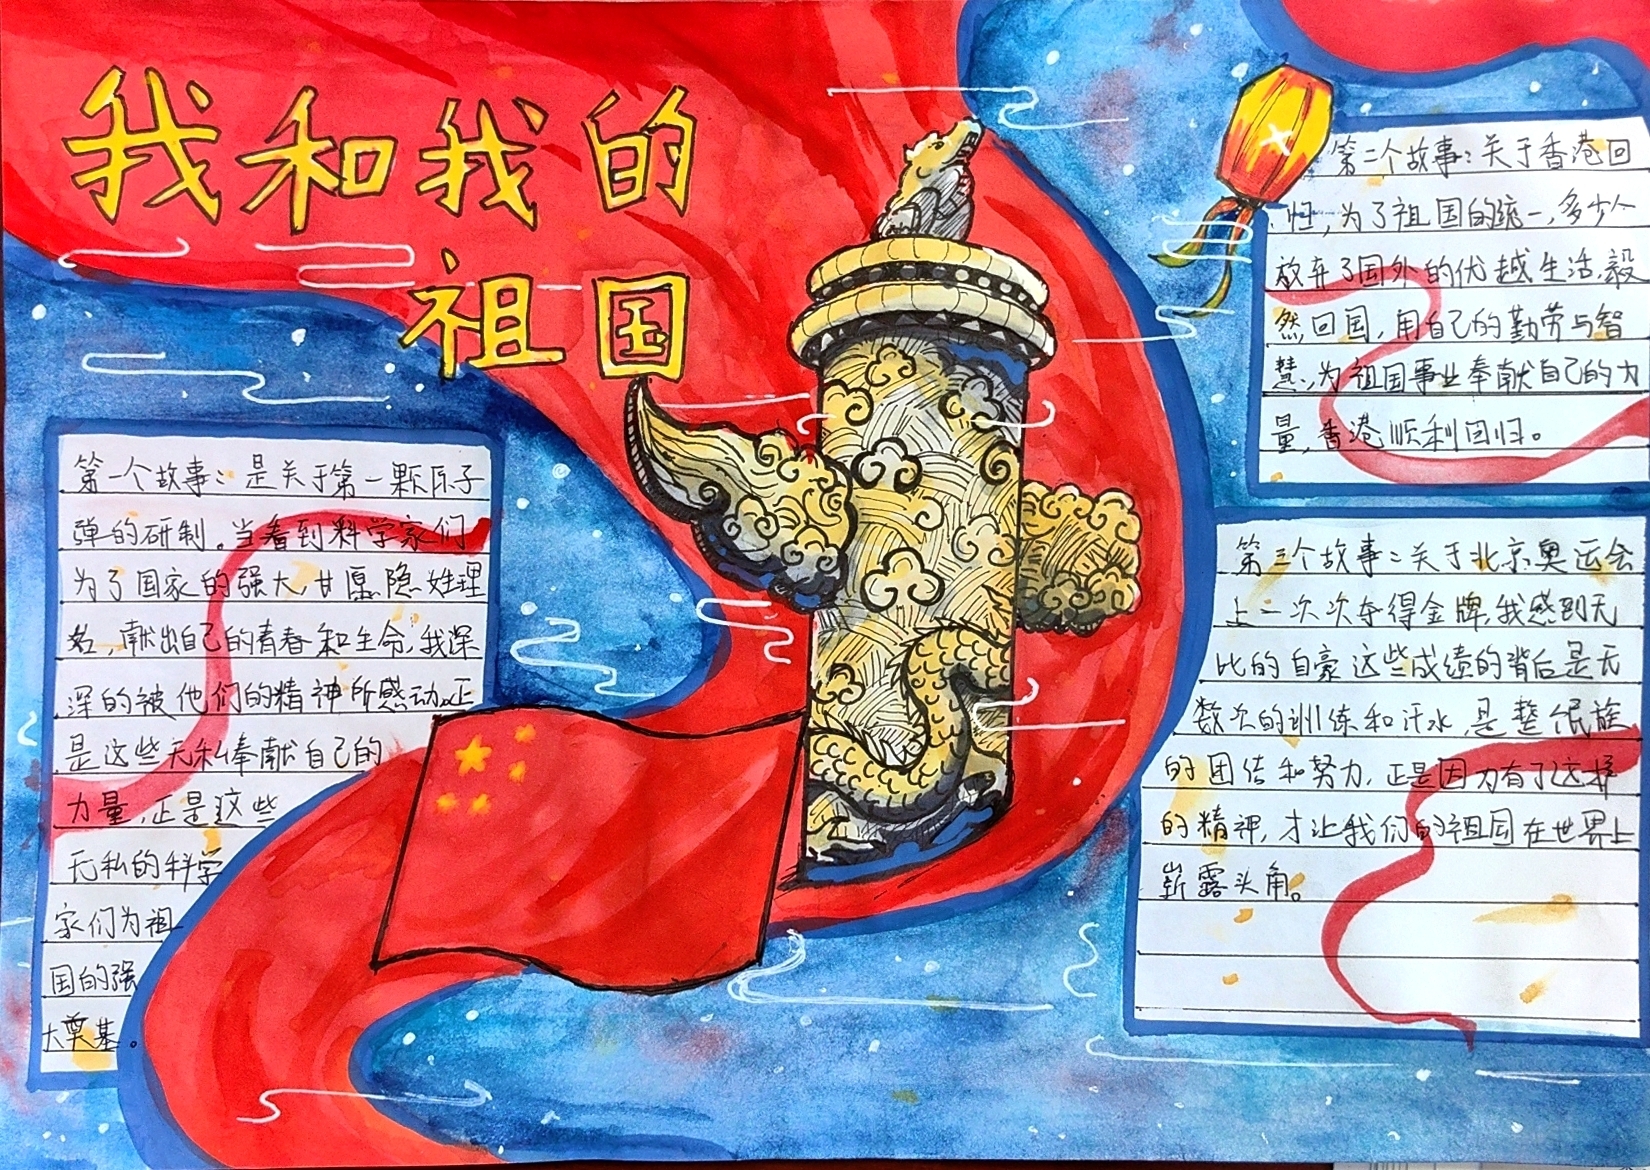 我和我的
祖国
第一个故事：是关于第一颗原子
弹的研制。当看到科学家们
为了国家的强大，甘愿隐姓埋
名，献出自己的青春和生命，我深
深的被他们的精神所感动。正
是这些无私奉献自己的
力量，正是这些
无私的科学
家们为祖
国的强
大奠基。
第二个故事：关于香港回
归，为了祖国的统一，多少人
放弃了国外的优越生活，毅
然回国，用自己的勤劳与智
慧，为祖国事业奉献自己的力
量，香港顺利回归。
第三个故事：关于北京奥运会
上一次次夺得金牌，我感到无
比的自豪这些成绩的背后是无
数次的训练和汗水，是整个民族
的团结和努力，正是因为有了这样
的精神，才让我们的祖国在世界上
崭露头角。